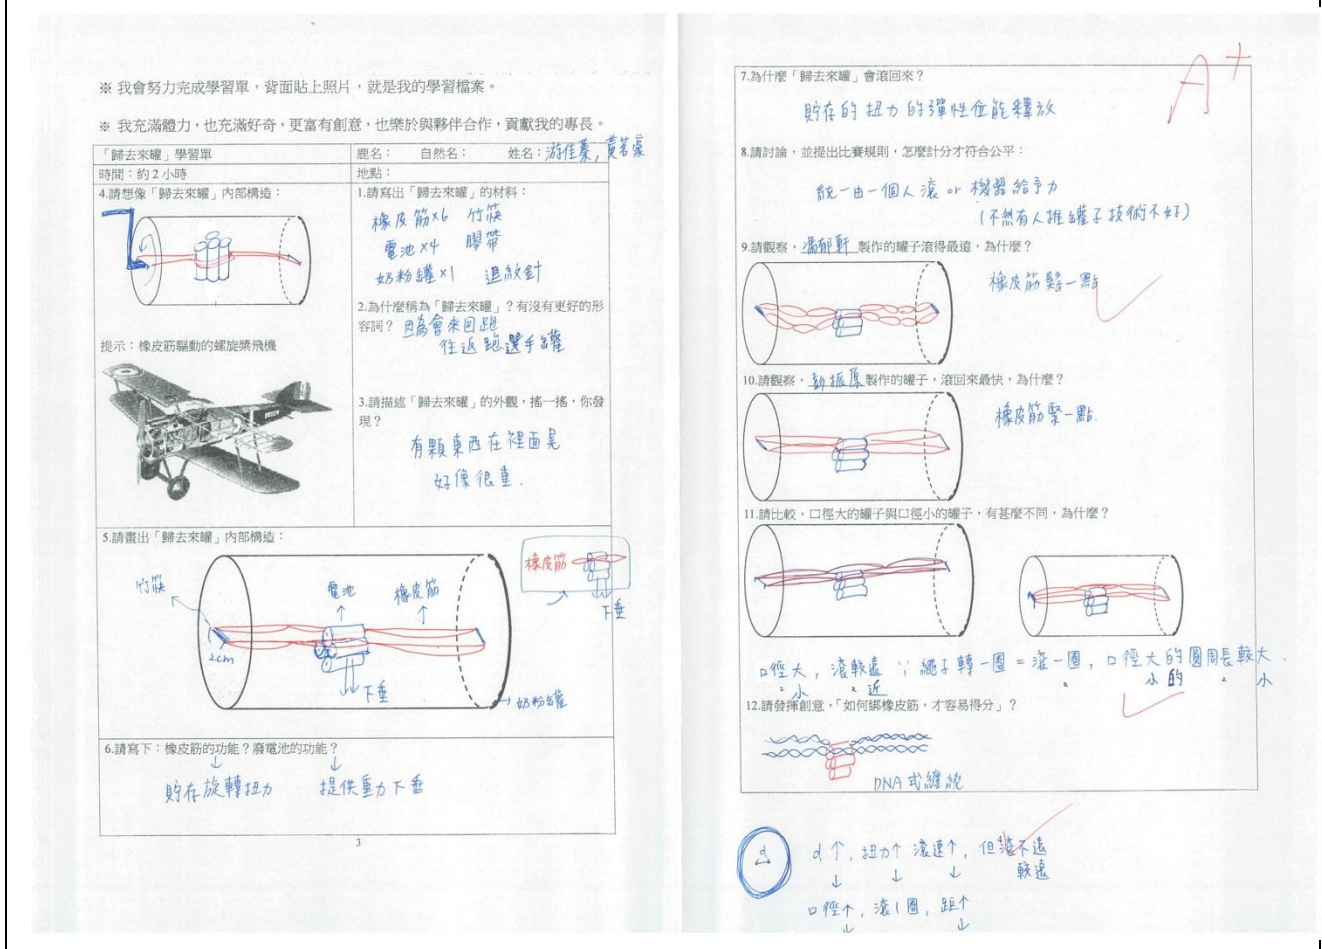 ※ 我會努力完成學習單，背面貼上照片，就是我的學習檔案。
※ 我充滿體力，也充滿好奇，更富有創意，也樂於與夥伴合作，貢獻我的專長。
「歸去來罐」學習單
鹿名： 自然名： 姓名：游佳蓁, 黃若豪
時間：約 2 小時
地點：
4.請想像「歸去來罐」內部構造：
提示：橡皮筋驅動的螺旋槳飛機
1.請寫出「歸去來罐」的材料：
橡皮筋×6 竹筷
電池×4 膠帶
奶粉罐×1 迴紋針
2.為什麼稱為「歸去來罐」？有沒有更好的形
容詞？ 因為會來回跑
往返跑選手罐
3.請描述「歸去來罐」的外觀，搖一搖，你發
現？
有顆東西在裡面晃
好像很重.
5.請畫出「歸去來罐」內部構造：
竹筷
電池
橡皮筋
2cm
下垂
奶粉罐
橡皮筋
下垂
6.請寫下：橡皮筋的功能？廢電池的功能？
貯存旋轉扭力 提供重力下垂
3
A+
7.為什麼「歸去來罐」會滾回來？
貯存的扭力的彈性位能釋放
8.請討論，並提出比賽規則，怎麼計分才符合公平：
統一由一個人滾 or 機器給予力
(不然有人推罐子技術不好)
9.請觀察，馮郁軒製作的罐子滾得最遠，為什麼？
橡皮筋鬆一點
10.請觀察，彭振原製作的罐子，滾回來最快，為什麼？
橡皮筋緊一點.
11.請比較，口徑大的罐子與口徑小的罐子，有甚麼不同，為什麼？
口徑大，滾較遠 ∵ 繩子轉一圈 = 滾一圈，口徑大的圓周長較大.
〃 小 〃 近 〃 小的 〃 小
12.請發揮創意，「如何綁橡皮筋，才容易得分」？
DNA 式纏繞
4
d↑，扭力↑ 滾速↑，但滾不遠
↓ ↓ ↓ 較遠
口徑↑，滾1圈，距↑
↓ ↓